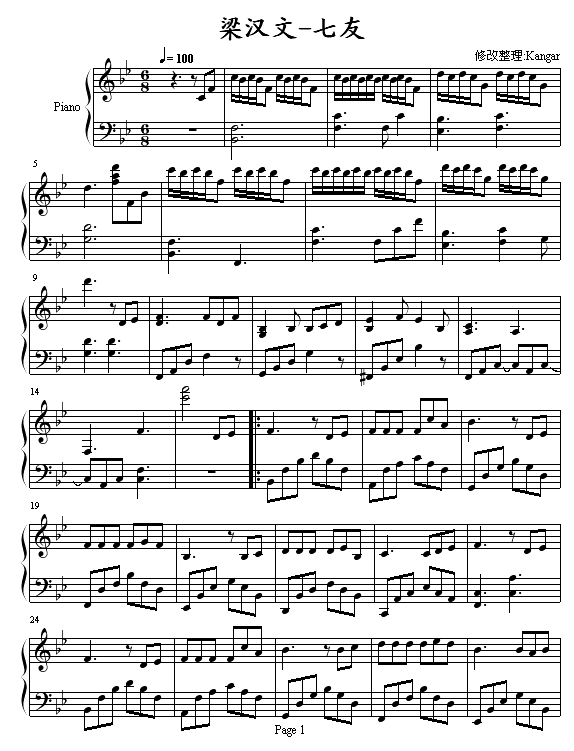 梁汉文-七友
♩= 100
修改整理:Kangar
Piano
6 8
6 8
5
9
14
19
24
Page 1